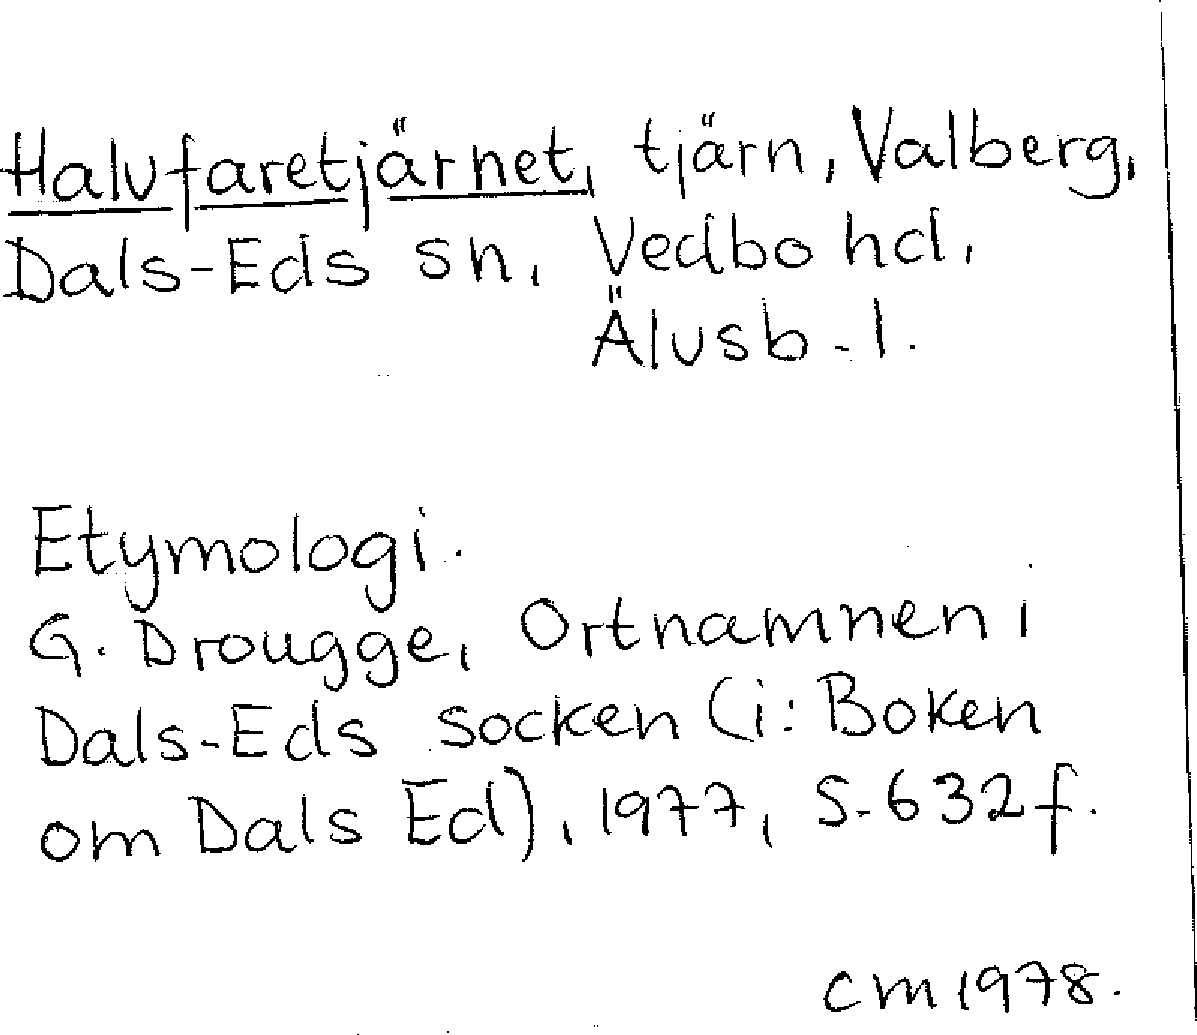 Halvfaretjärnet, tjärn, Valberg,
Dals-Eds sn, Vedbo hd,
Älvsb.l.
Etymologi.
G. Drougge, Ortnamnen i
Dals-Eds socken (i: Boken
om Dals Ed), 1977, s. 632 f.
CM 1978.